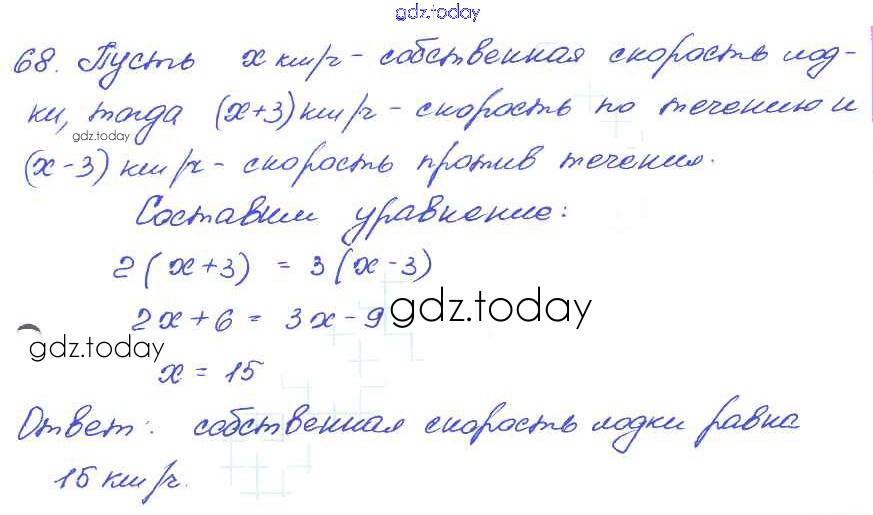 gdz.today
68. Пусть x км/ч - собственная скорость лод-
ки, тогда (x+3) км/ч - скорость по течению и
gdz.today
(x-3) км/ч - скорость против течения.
Составим уравнение:
2(x+3) = 3(x-3)
2x+6 = 3x-9
gdz.today
gdz.today
x = 15
Ответ: собственная скорость лодки равна
15 км/ч.